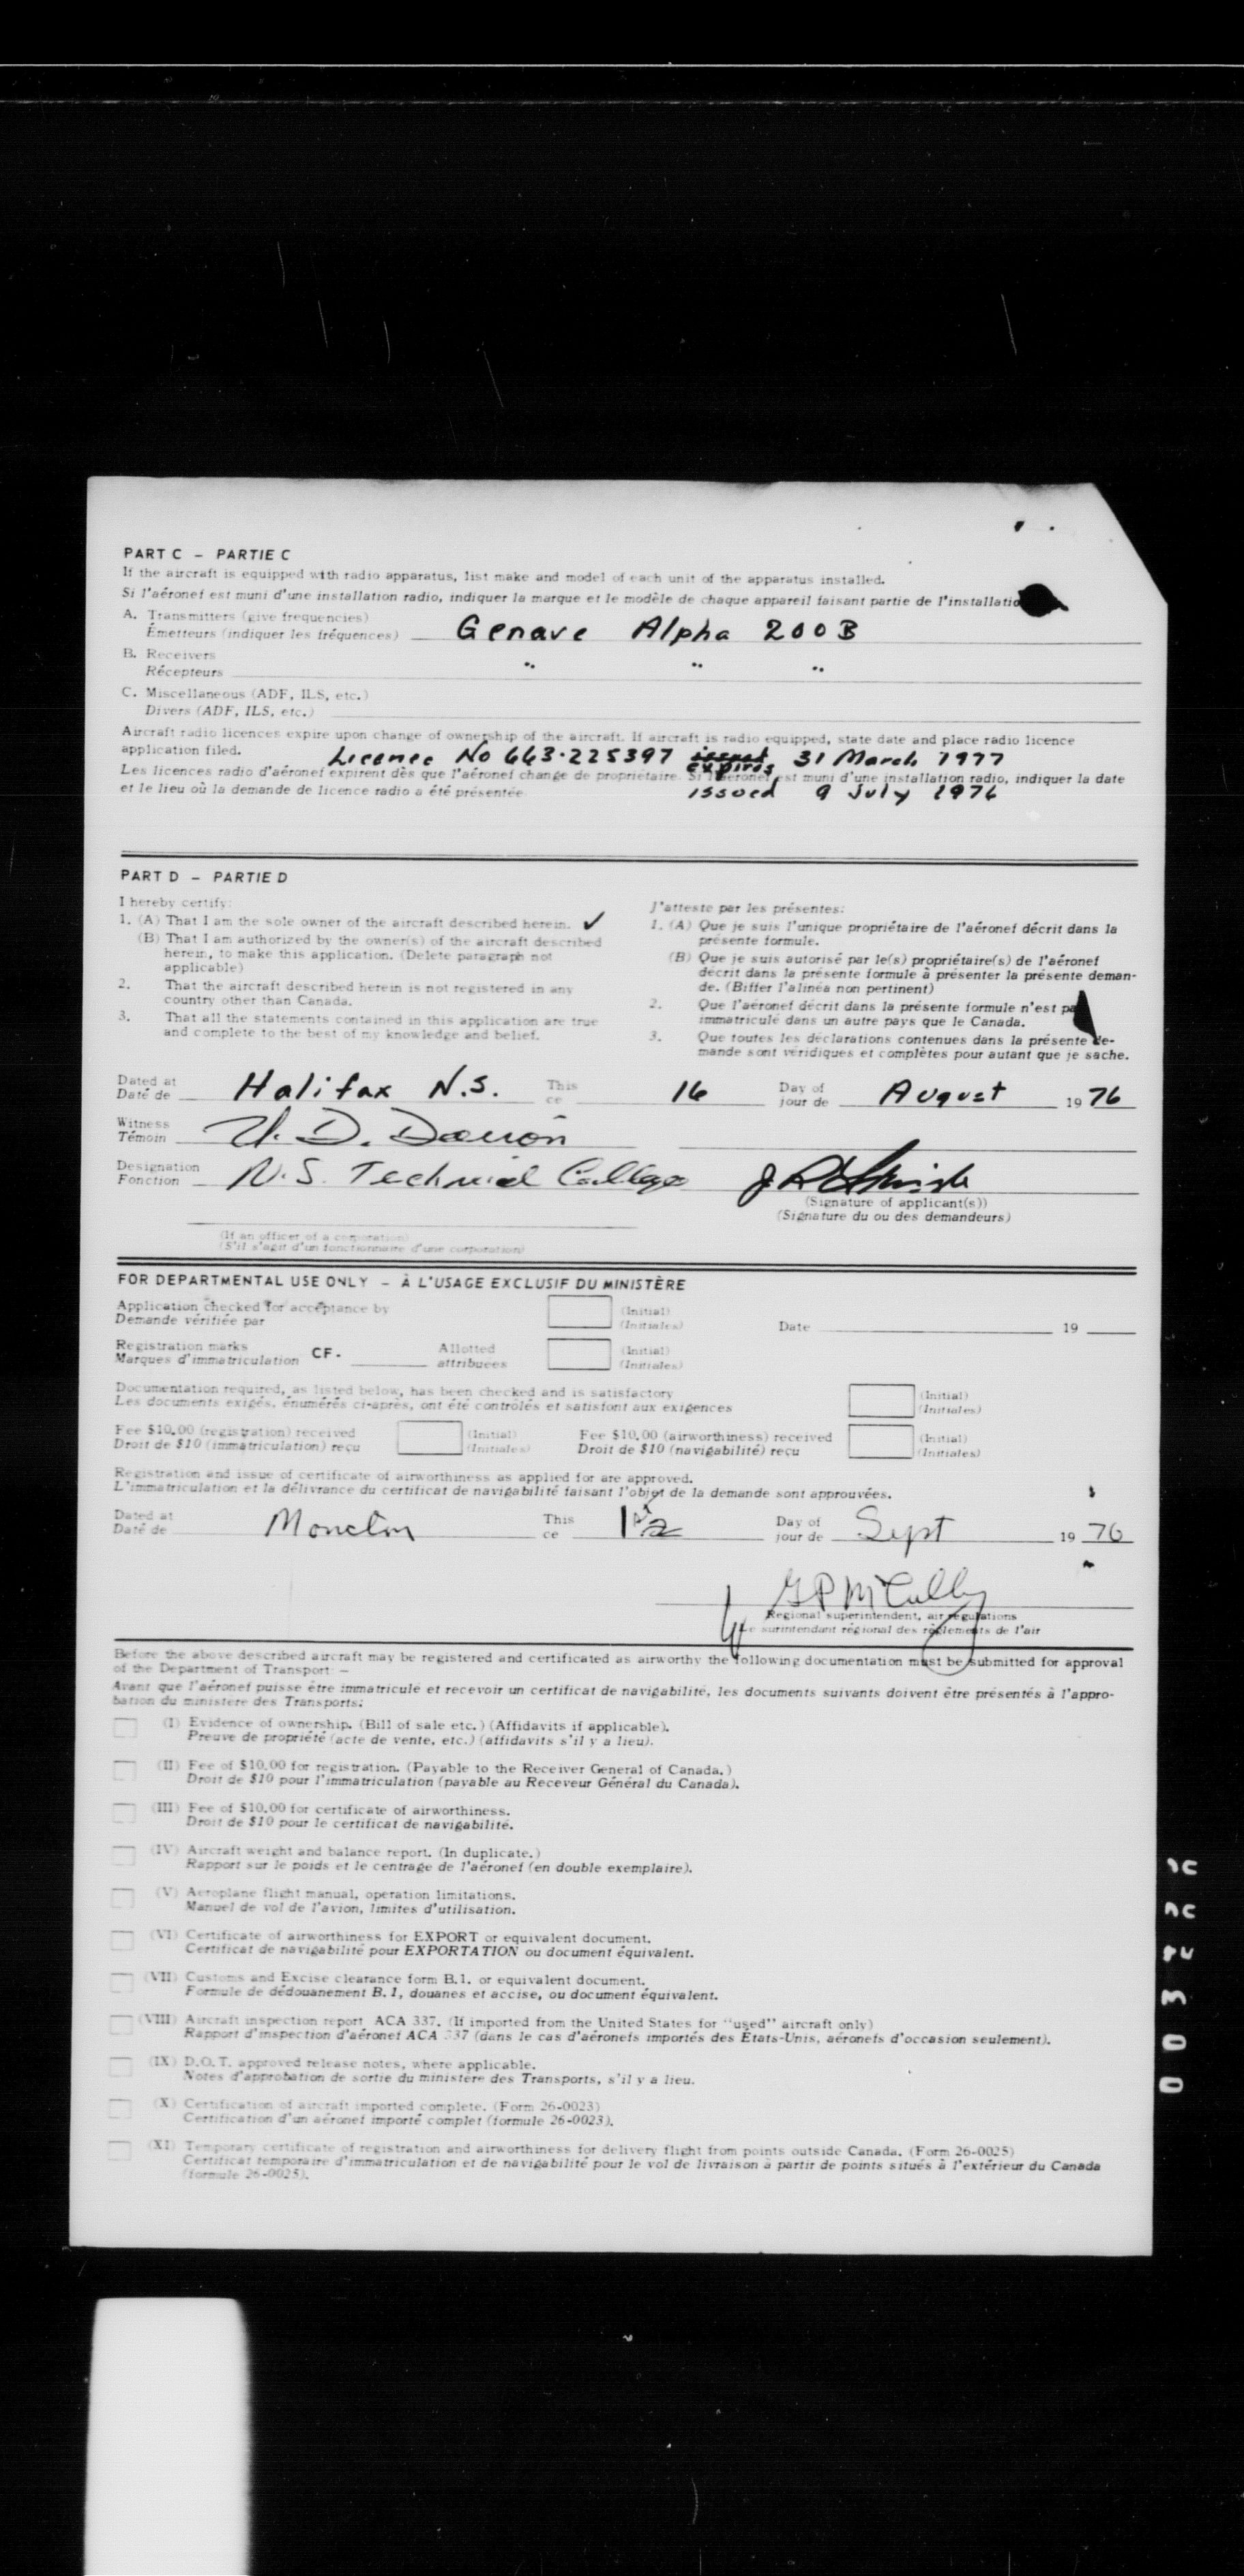 PART C – PARTIE C
If the aircraft is equipped with radio apparatus, list make and model of each unit of the apparatus installed.
Si l'aéronef est muni d'une installation radio, indiquer la marque et le modèle de chaque appareil faisant partie de l'installatio
A. Transmitters (give frequencies)
Émetteurs (indiquer les fréquences) Genave Alpha 200B
B. Receivers
Récepteurs " " "
C. Miscellaneous (ADF, ILS, etc.)
Divers (ADF, ILS, etc.)
Aircraft radio licences expire upon change of ownership of the aircraft. If aircraft is radio equipped, state date and place radio licence
application filed. Licence No 663-225397 issued expires 31 March 1977
Les licences radio d'aéronef expirent dès que l'aéronef change de propriétaire. Si l'aéronef est muni d'une installation radio, indiquer la date
et le lieu où la demande de licence radio a été présentée. issued 9 July 1976
PART D – PARTIE D
I hereby certify:
1. (A) That I am the sole owner of the aircraft described herein. ✓
(B) That I am authorized by the owner(s) of the aircraft described
herein, to make this application. (Delete paragraph not
applicable)
2. That the aircraft described herein is not registered in any
country other than Canada.
3. That all the statements contained in this application are true
and complete to the best of my knowledge and belief.
J'atteste par les présentes:
1. (A) Que je suis l'unique propriétaire de l'aéronef décrit dans la
présente formule.
(B) Que je suis autorisé par le(s) propriétaire(s) de l'aéronef
décrit dans la présente formule à présenter la présente deman-
de. (Biffer l'alinéa non pertinent)
2. Que l'aéronef décrit dans la présente formule n'est pa
immatriculé dans un autre pays que le Canada.
3. Que toutes les déclarations contenues dans la présente de-
mande sont véridiques et complètes pour autant que je sache.
Dated at This Day of
Daté de Halifax N.S. ce 16 jour de August 19 76
Witness
Témoin
Designation
Fonction N.S. Technical College
(Signature of applicant(s))
(Signature du ou des demandeurs)
(If an officer of a corporation)
(S'il s'agit d'un fonctionnaire d'une corporation)
FOR DEPARTMENTAL USE ONLY – À L'USAGE EXCLUSIF DU MINISTÈRE
Application checked for acceptance by (Initial)
Demande vérifiée par (Initiales) Date 19
Registration marks CF- Allotted (Initial)
Marques d'immatriculation attribuées (Initiales)
Documentation required, as listed below, has been checked and is satisfactory (Initial)
Les documents exigés, énumérés ci-après, ont été contrôlés et satisfont aux exigences (Initiales)
Fee $10.00 (registration) received (Initial) Fee $10.00 (airworthiness) received (Initial)
Droit de $10 (immatriculation) reçu (Initiales) Droit de $10 (navigabilité) reçu (Initiales)
Registration and issue of certificate of airworthiness as applied for are approved.
L'immatriculation et la délivrance du certificat de navigabilité faisant l'objet de la demande sont approuvées.
Dated at This Day of
Daté de Moncton ce jour de Sept 19 76
GP McCully
Regional superintendent, air regulations
Le surintendant régional des règlements de l'air
Before the above described aircraft may be registered and certificated as airworthy the following documentation must be submitted for approval
of the Department of Transport: –
Avant que l'aéronef puisse être immatriculé et recevoir un certificat de navigabilité, les documents suivants doivent être présentés à l'appro-
bation du ministère des Transports:
(I) Evidence of ownership. (Bill of sale etc.) (Affidavits if applicable).
Preuve de propriété (acte de vente, etc.) (affidavits s'il y a lieu).
(II) Fee of $10.00 for registration. (Payable to the Receiver General of Canada.)
Droit de $10 pour l'immatriculation (payable au Receveur Général du Canada).
(III) Fee of $10.00 for certificate of airworthiness.
Droit de $10 pour le certificat de navigabilité.
(IV) Aircraft weight and balance report. (In duplicate.)
Rapport sur le poids et le centrage de l'aéronef (en double exemplaire).
(V) Aeroplane flight manual, operation limitations.
Manuel de vol de l'avion, limites d'utilisation.
(VI) Certificate of airworthiness for EXPORT or equivalent document.
Certificat de navigabilité pour EXPORTATION ou document équivalent.
(VII) Customs and Excise clearance form B.1. or equivalent document.
Formule de dédouanement B.1, douanes et accise, ou document équivalent.
(VIII) Aircraft inspection report ACA 337. (If imported from the United States for "used" aircraft only)
Rapport d'inspection d'aéronef ACA 337 (dans le cas d'aéronefs importés des États-Unis, aéronefs d'occasion seulement).
(IX) D.O.T. approved release notes, where applicable.
Notes d'approbation de sortie du ministère des Transports, s'il y a lieu.
(X) Certification of aircraft imported complete. (Form 26-0023)
Certification d'un aéronef importé complet (formule 26-0023).
(XI) Temporary certificate of registration and airworthiness for delivery flight from points outside Canada. (Form 26-0025)
Certificat temporaire d'immatriculation et de navigabilité pour le vol de livraison à partir de points situés à l'extérieur du Canada
(formule 26-0025).